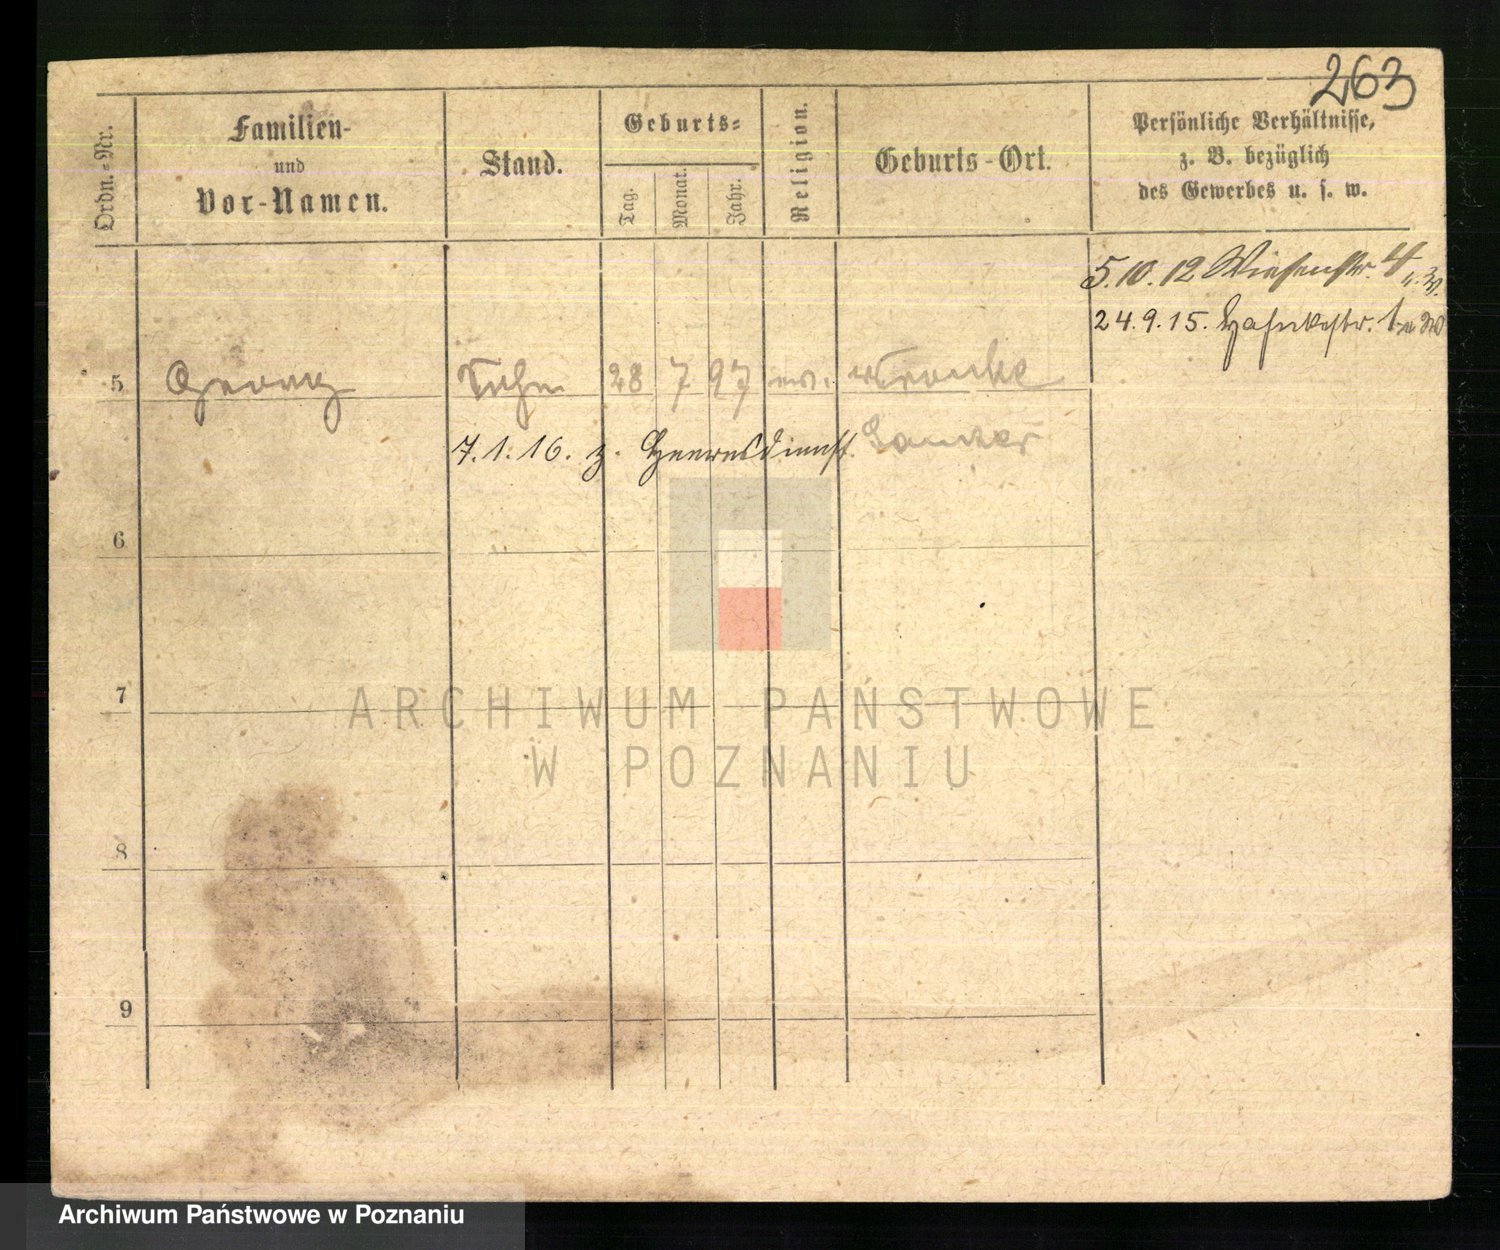 263
Ordn.-Nr.
Familien-
und
Vor-Namen.
Stand.
Geburts-
Tag.
Monat.
Jahr.
Religion.
Geburts-Ort.
Persönliche Verhältnisse,
z. B. bezüglich
des Gewerbes u. s. w.
5.10.12 Wiesenstr. 4
24.9.15. 
5 Georg Sohn 28 7 97 ev.
7.1.16. z. Heeresdienst.
6
7
8
9
ARCHIWUM PAŃSTWOWE
W POZNANIU
Archiwum Państwowe w Poznaniu